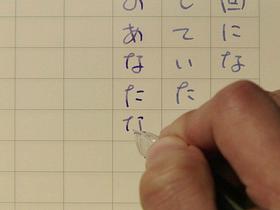 回にな
していた
あなた